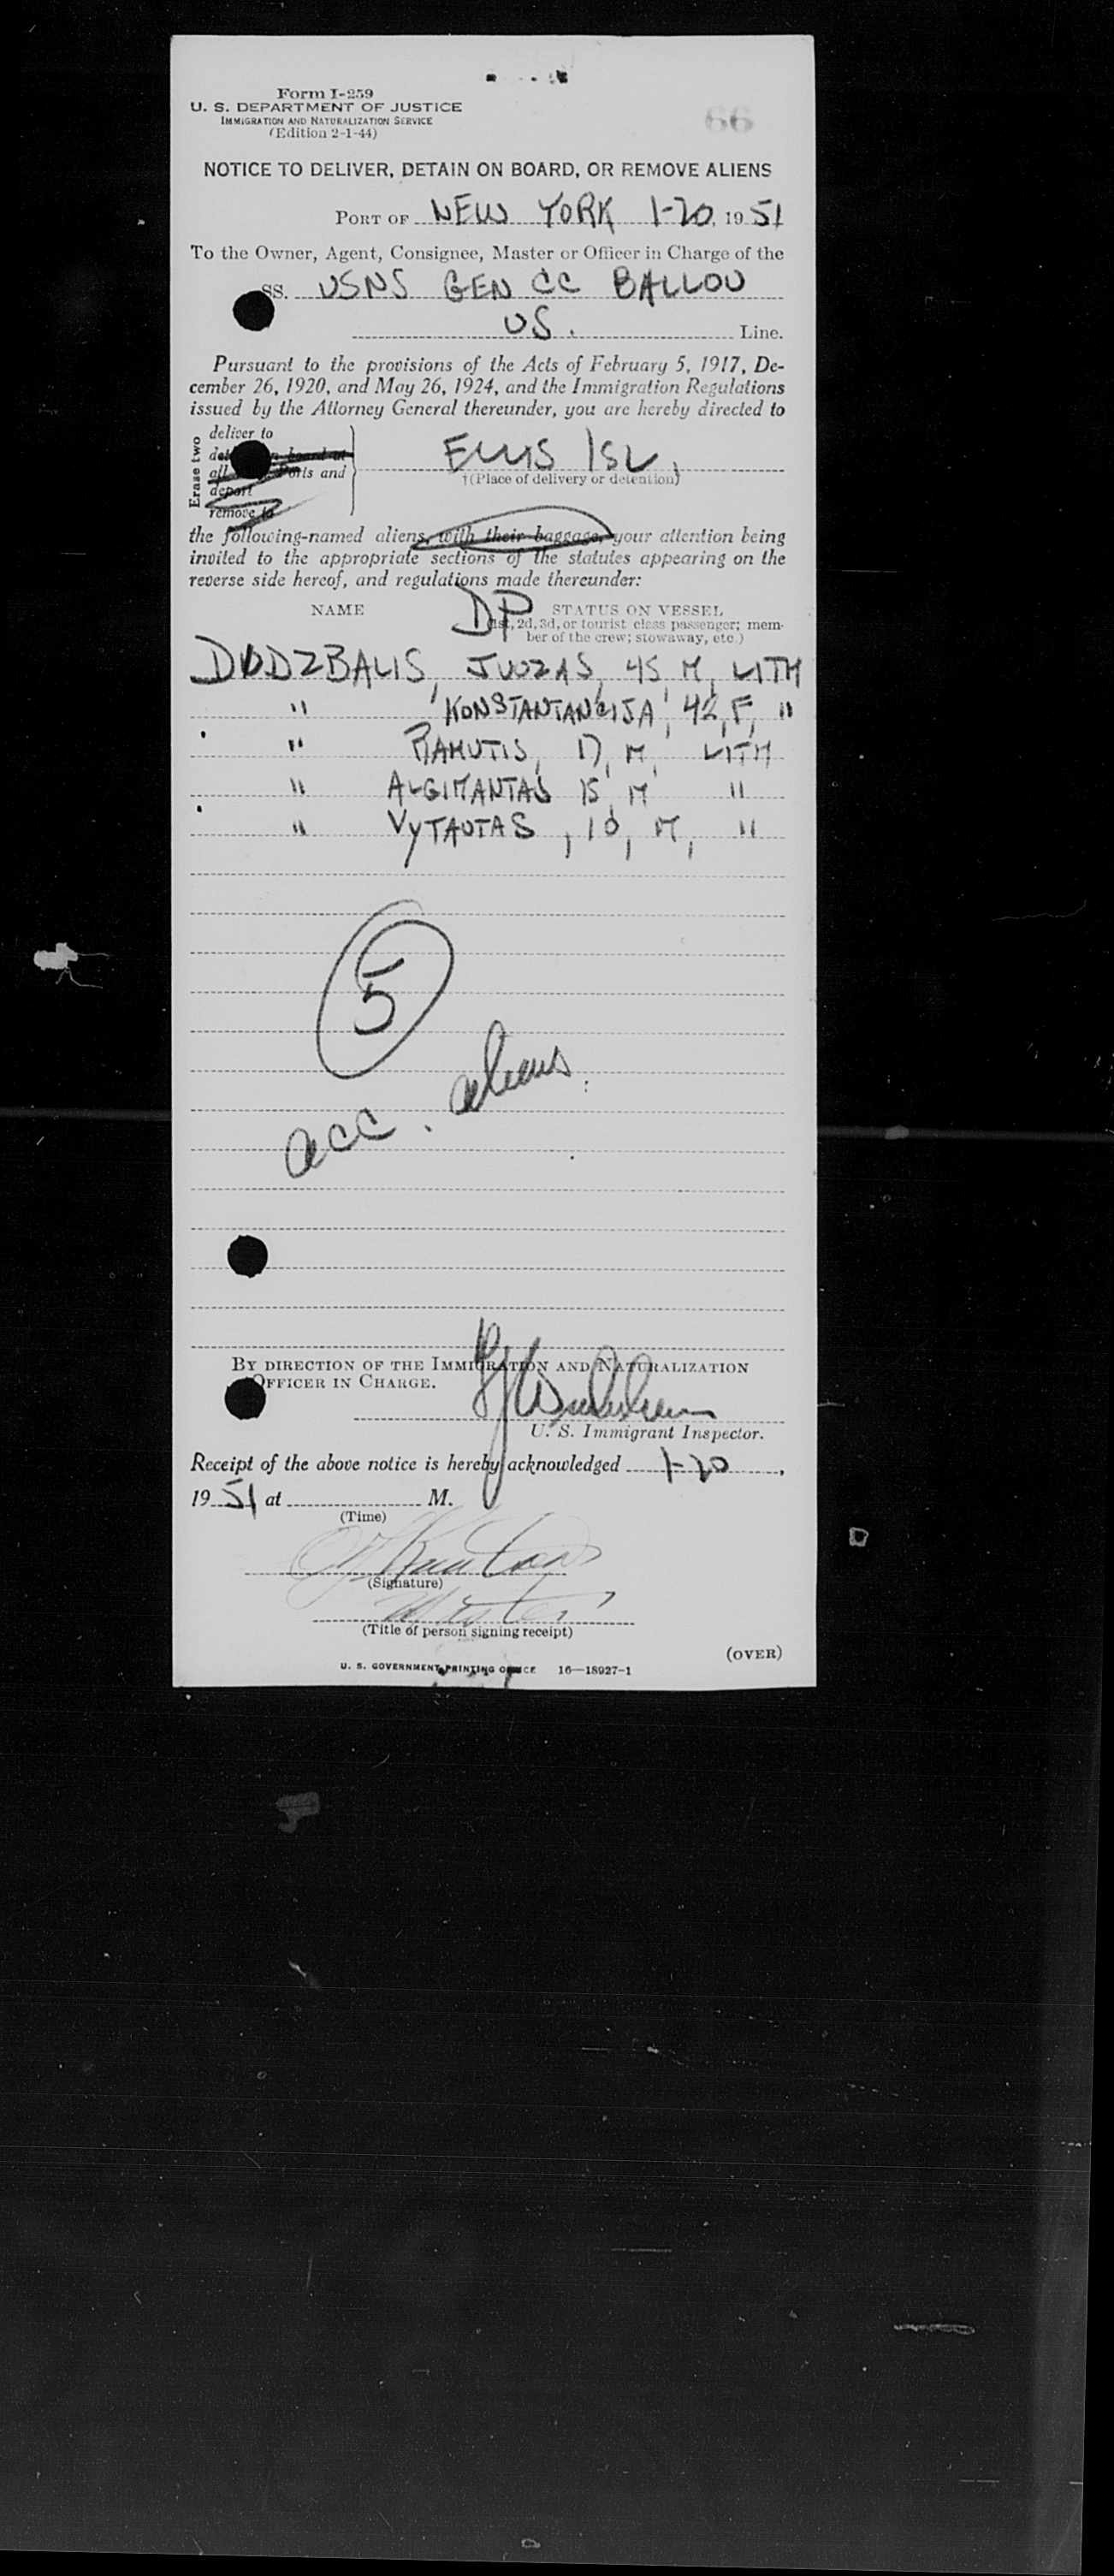 Form I-259
U. S. DEPARTMENT OF JUSTICE
IMMIGRATION AND NATURALIZATION SERVICE
(Edition 2-1-44)
66
NOTICE TO DELIVER, DETAIN ON BOARD, OR REMOVE ALIENS
PORT OF NEW YORK 1-20, 1951
To the Owner, Agent, Consignee, Master or Officer in Charge of the
SS. USNS GEN CC BALLOU
US. Line.
Pursuant to the provisions of the Acts of February 5, 1917, De-
cember 26, 1920, and May 26, 1924, and the Immigration Regulations
issued by the Attorney General thereunder, you are hereby directed to
Erase two
deliver to
board at
all ports and
deport
remove to
ELLIS ISL,
†(Place of delivery or detention)
the following-named aliens, with their baggage, your attention being
invited to the appropriate sections of the statutes appearing on the
reverse side hereof, and regulations made thereunder:
NAME DP STATUS ON VESSEL
(1st, 2d, 3d, or tourist class passenger; mem-
ber of the crew; stowaway, etc.)
DUDZBALIS, JUOZAS, 45 M, LITH
" KONSTANTANCIJA, 42, F, "
" RAMUTIS, 17, M, LITH
" ALGIMANTAS 15 M "
" VYTAUTAS, 10, M, "
5
acc. aliens.
BY DIRECTION OF THE IMMIGRATION AND NATURALIZATION
OFFICER IN CHARGE.
U. S. Immigrant Inspector.
Receipt of the above notice is hereby acknowledged 1-20,
1951 at M.
(Time)
(Signature)
Master
(Title of person signing receipt)
(OVER)
U. S. GOVERNMENT PRINTING OFFICE 16—18927-1